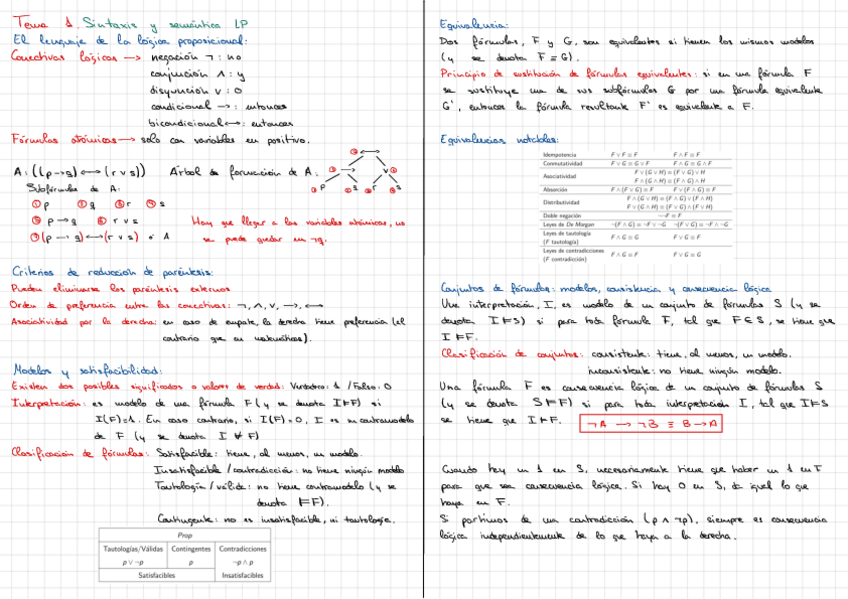 Tema 1. Sintaxis y semántica LP
El lenguaje de la lógica proposicional:
Conectivas lógicas → negación ¬ : no
conjunción ∧ : y
disyunción ∨ : o
condicional → : entonces
bicondicional ↔ : entonces
Fórmulas atómicas → solo con variables en positivo.
A: ((p→q) ↔ (r ∨ s)) Árbol de formación de A:
Subfórmulas de A:
① p ② q ③ r ④ s
⑤ p → q ⑥ r ∨ s
⑦ (p → q) ↔ (r ∨ s) o A
Hay que llegar a las variables atómicas, no
se puede quedar en ¬q.
Criterios de reducción de paréntesis:
Pueden eliminarse los paréntesis externos
Orden de preferencia entre las conectivas: ¬, ∧, ∨, →, ↔
Asociatividad por la derecha: en caso de empate, la derecha tiene preferencia (al
contrario que en matemáticas).
Modelos y satisfacibilidad:
Existen dos posibles significados o valores de verdad: Verdadero: 1 / Falso: 0
Interpretación: es modelo de una fórmula F (y se denota I⊨F) si
I(F)=1. En caso contrario, si I(F)=0, I es un contramodelo
de F (y se denota I ⊭ F)
Clasificación de fórmulas: Satisfacible: tiene, al menos, un modelo.
Insatisfacible / contradicción: no tiene ningún modelo
Tautología / válida: no tiene contramodelo (y se
denota ⊨F).
Contingente: no es insatisfacible, ni tautología.
Prop
Tautologías/Válidas Contingentes Contradicciones
p ∨ ¬p p ¬p ∧ p
Satisfacibles Insatisfacibles
Equivalencia:
Dos fórmulas, F y G, son equivalentes si tienen los mismos modelos
(y se denota F ≡ G).
Principio de sustitución de fórmulas equivalentes: si en una fórmula F
se sustituye una de sus subfórmulas G por una fórmula equivalente
G', entonces la fórmula resultante F' es equivalente a F.
Equivalencias notables:
Idempotencia F ∨ F ≡ F F ∧ F ≡ F
Conmutatividad F ∨ G ≡ G ∨ F F ∧ G ≡ G ∧ F
Asociatividad F ∨ (G ∨ H) ≡ (F ∨ G) ∨ H
F ∧ (G ∧ H) ≡ (F ∧ G) ∧ H
Absorción F ∧ (F ∨ G) ≡ F F ∨ (F ∧ G) ≡ F
Distributividad F ∧ (G ∨ H) ≡ (F ∧ G) ∨ (F ∧ H)
F ∨ (G ∧ H) ≡ (F ∨ G) ∧ (F ∨ H)
Doble negación ¬¬F ≡ F
Leyes de De Morgan ¬(F ∧ G) ≡ ¬F ∨ ¬G ¬(F ∨ G) ≡ ¬F ∧ ¬G
Leyes de tautología
(F tautología) F ∧ G ≡ G F ∨ G ≡ F
Leyes de contradicciones
(F contradicción) F ∧ G ≡ F F ∨ G ≡ G
Conjuntos de fórmulas: modelos, consistencia y consecuencia lógica
Una interpretación, I, es modelo de un conjunto de fórmulas S (y se
denota I⊨S) si para toda fórmula F, tal que F∈S, se tiene que
I ⊨F.
Clasificación de conjuntos: consistente: tiene, al menos, un modelo.
inconsistente: no tiene ningún modelo.
Una fórmula F es consecuencia lógica de un conjunto de fórmulas S
(y se denota S⊨F) si para toda interpretación I, tal que I⊨S
se tiene que I⊨F.
¬A → ¬B ≡ B → A
Cuando hay un 1 en S, necesariamente tiene que haber un 1 en F
para que sea consecuencia lógica. Si hay 0 en S, da igual lo que
haya en F.
Si partimos de una contradicción (p ∧ ¬p), siempre es consecuencia
lógica independientemente de lo que haya a la derecha.